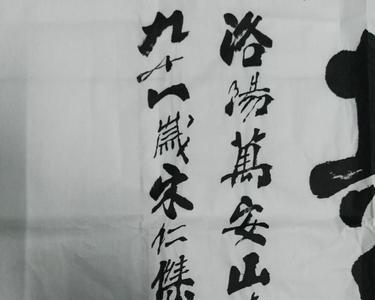 洛陽萬安山
九十一歲宋仁傑